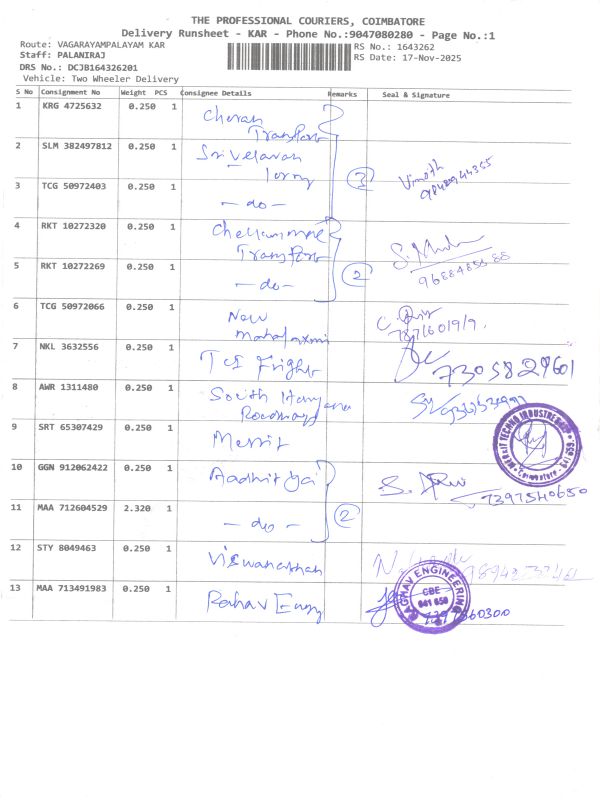 THE PROFESSIONAL COURIERS, COIMBATORE
Delivery Runsheet - KAR - Phone No.:9047080280 - Page No.:1
Route: VAGARAYAMPALAYAM KAR
RS No.: 1643262
Staff: PALANIRAJ
RS Date: 17-Nov-2025
DRS No.: DCJB164326201
Vehicle: Two Wheeler Delivery
S No Consignment No Weight PCS Consignee Details Remarks Seal & Signature
1 KRG 4725632 0.250 1 Cheran
Transport
2 SLM 382497812 0.250 1 Sri Velavan
lorry
3 TCG 50972403 0.250 1 - do -
4 RKT 10272320 0.250 1
Transport
5 RKT 10272269 0.250 1 - do - 2
6 TCG 50972066 0.250 1 New
mahalaxmi
7 NKL 3632556 0.250 1 TCI Fright 7305829601
8 AWR 1311480 0.250 1 South Haryana
Roadways
9 SRT 65307429 0.250 1 Merrit
10 GGN 912062422 0.250 1 Aadhitya 7397540650
11 MAA 712604529 2.320 1 - do - 2
12 STY 8049463 0.250 1 Viswanathan
13 MAA 713491983 0.250 1 Raghav Engg
RAGHAV ENGINEERING
CBE
641 659